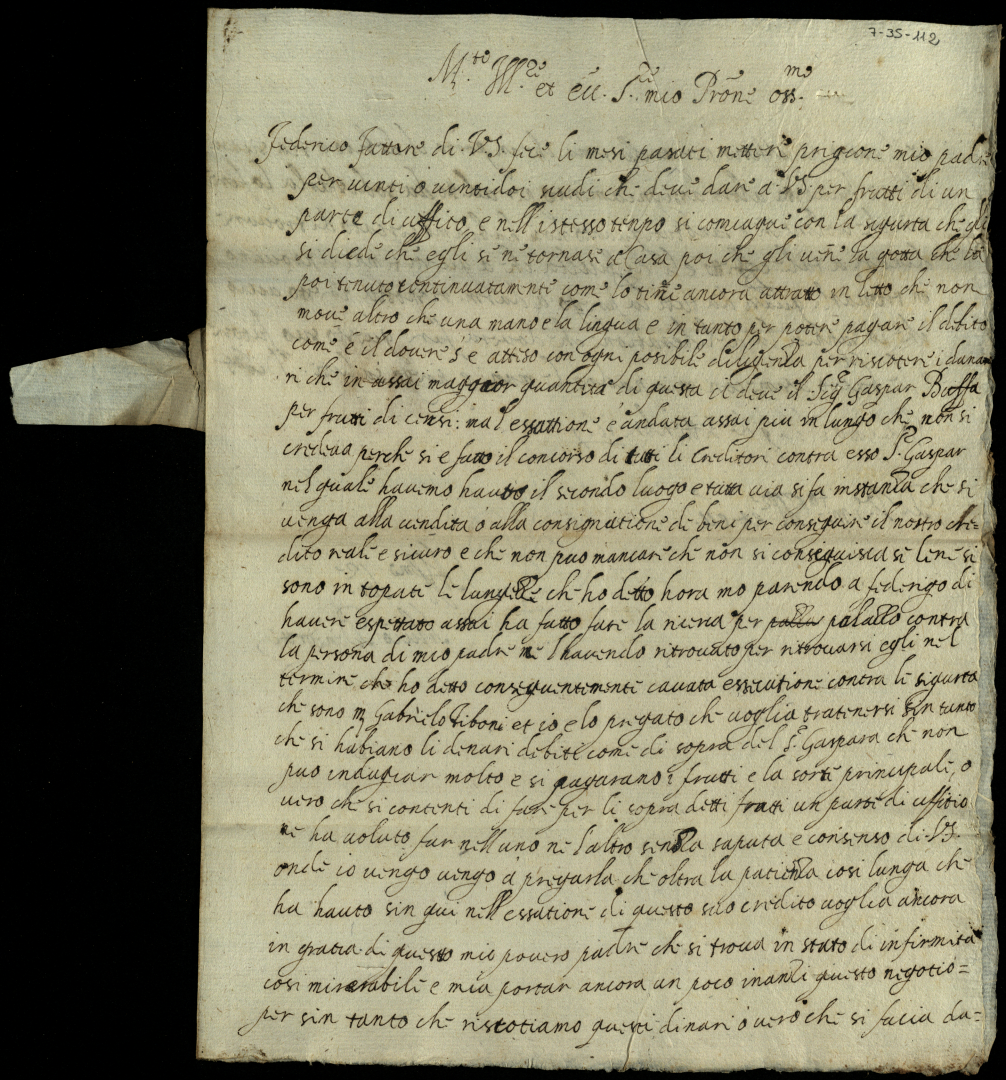 7-35-112
M.to Ill.re et ecc. S.re mio Prone oss.mo
Federico fattore di .VS. fece li mesi pasati mettere prigione mio padre
per vinti o vintidoi scudi che deve dare a VS per frutti di un
parte di uffito, e nell istesso tenpo si comiaque con la sigurta che gli
si diede che egli se ne tornase a Casa poi che gli vene la gotta che la
poi tenuto continuatamente come lo tine ancora attratto in letto che non
move altro che una mano e la lingua e in tanto per potere pagare il debito
come è il dovere s'è atteso con ogni posibile diligenza per riscotere i dana
ri che in assai maggior quantita di questa il deve il Sig Gaspar Bioffa
per frutti di censi: ma l essattione è andata assai piu in lungo che non si
credeva perche si e fatto il concorso di tutti li Creditori contra esso S.r Gaspar
nel quale havemo hauto il secondo luogo e tutta via si fa instanza che si
venga alla vendita o alla consignatione de beni per conseguire il nostro cre=
dito reale e sicuro e che non puo mancare che non si conseguisca se bene si
sono in topate le lungezze che ho detto hora mo parendo a federigo di
havere espettato assai ha fatto fare la ricerca per palla palazzo contra
la persona di mio padre ne l havendo ritrovato per ritrovarsi egli nel
termine che ho detto conseguentimente cavata essecutione contra le sigurta
che sono m Gabrielo Tiboni et io, e lo pregato che voglia tratenersi sin tanto
che si habiano li denari debite come di sopra del S.r Gaspara che non
puo indugiar molto e si pagarano i frutti e la sorte principale, o
vero che si contenti di fare per li sopra detti frutti un parte di uffitio
ne ha voluto far nell uno ne l'altro senza saputa e consenso di .VS.
onde io vengo vengo à pregarla che oltra la patienza cosi lunga che
ha hauto sin qui nell essatione di questo suo credito voglia ancora
in gratia di questo mio povero padre che si trova in stato di infirmità
cosi mirerabile e mia portar ancora un poco inanzi questo negotio=
per sin tanto che riscotiamo questi dinari o vero che si facia da=